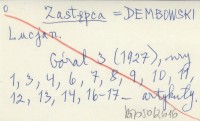 Zastępca = DEMBOWSKI
Lucjan.
Góral 3 (1927), nry
1, 3, 4, 6, 7, 8, 9, 10, 11,
12, 13, 14, 16-17 – artykuły.